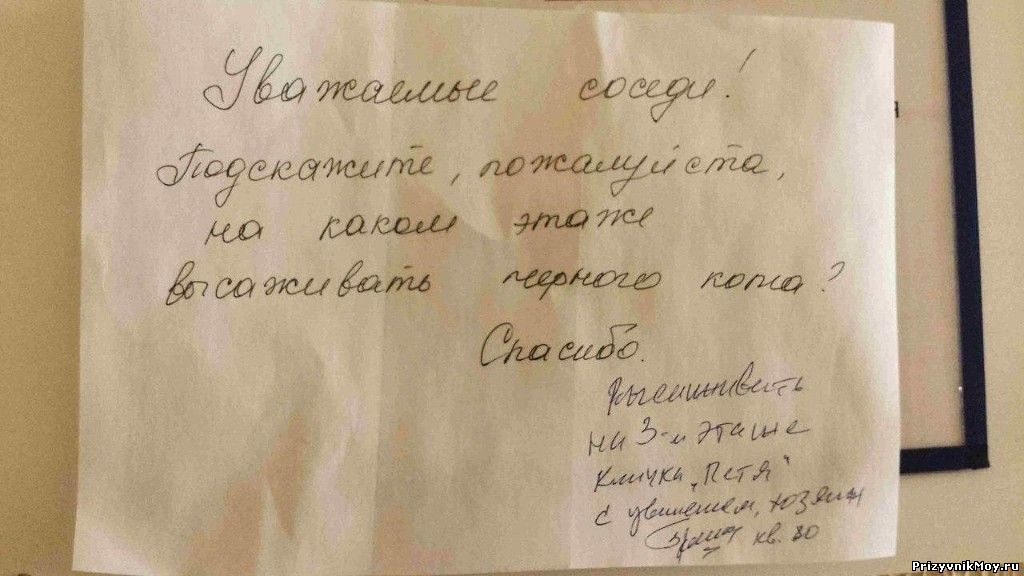 Уважаемые соседи!
Подскажите, пожалуйста,
на каком этаже
высаживать черного кота?
Спасибо.
Высаживать
на 3-м этаже
Кличка "Петя"
с уважением, хозяин
кв. 80
PrizyvnikMoy.ru